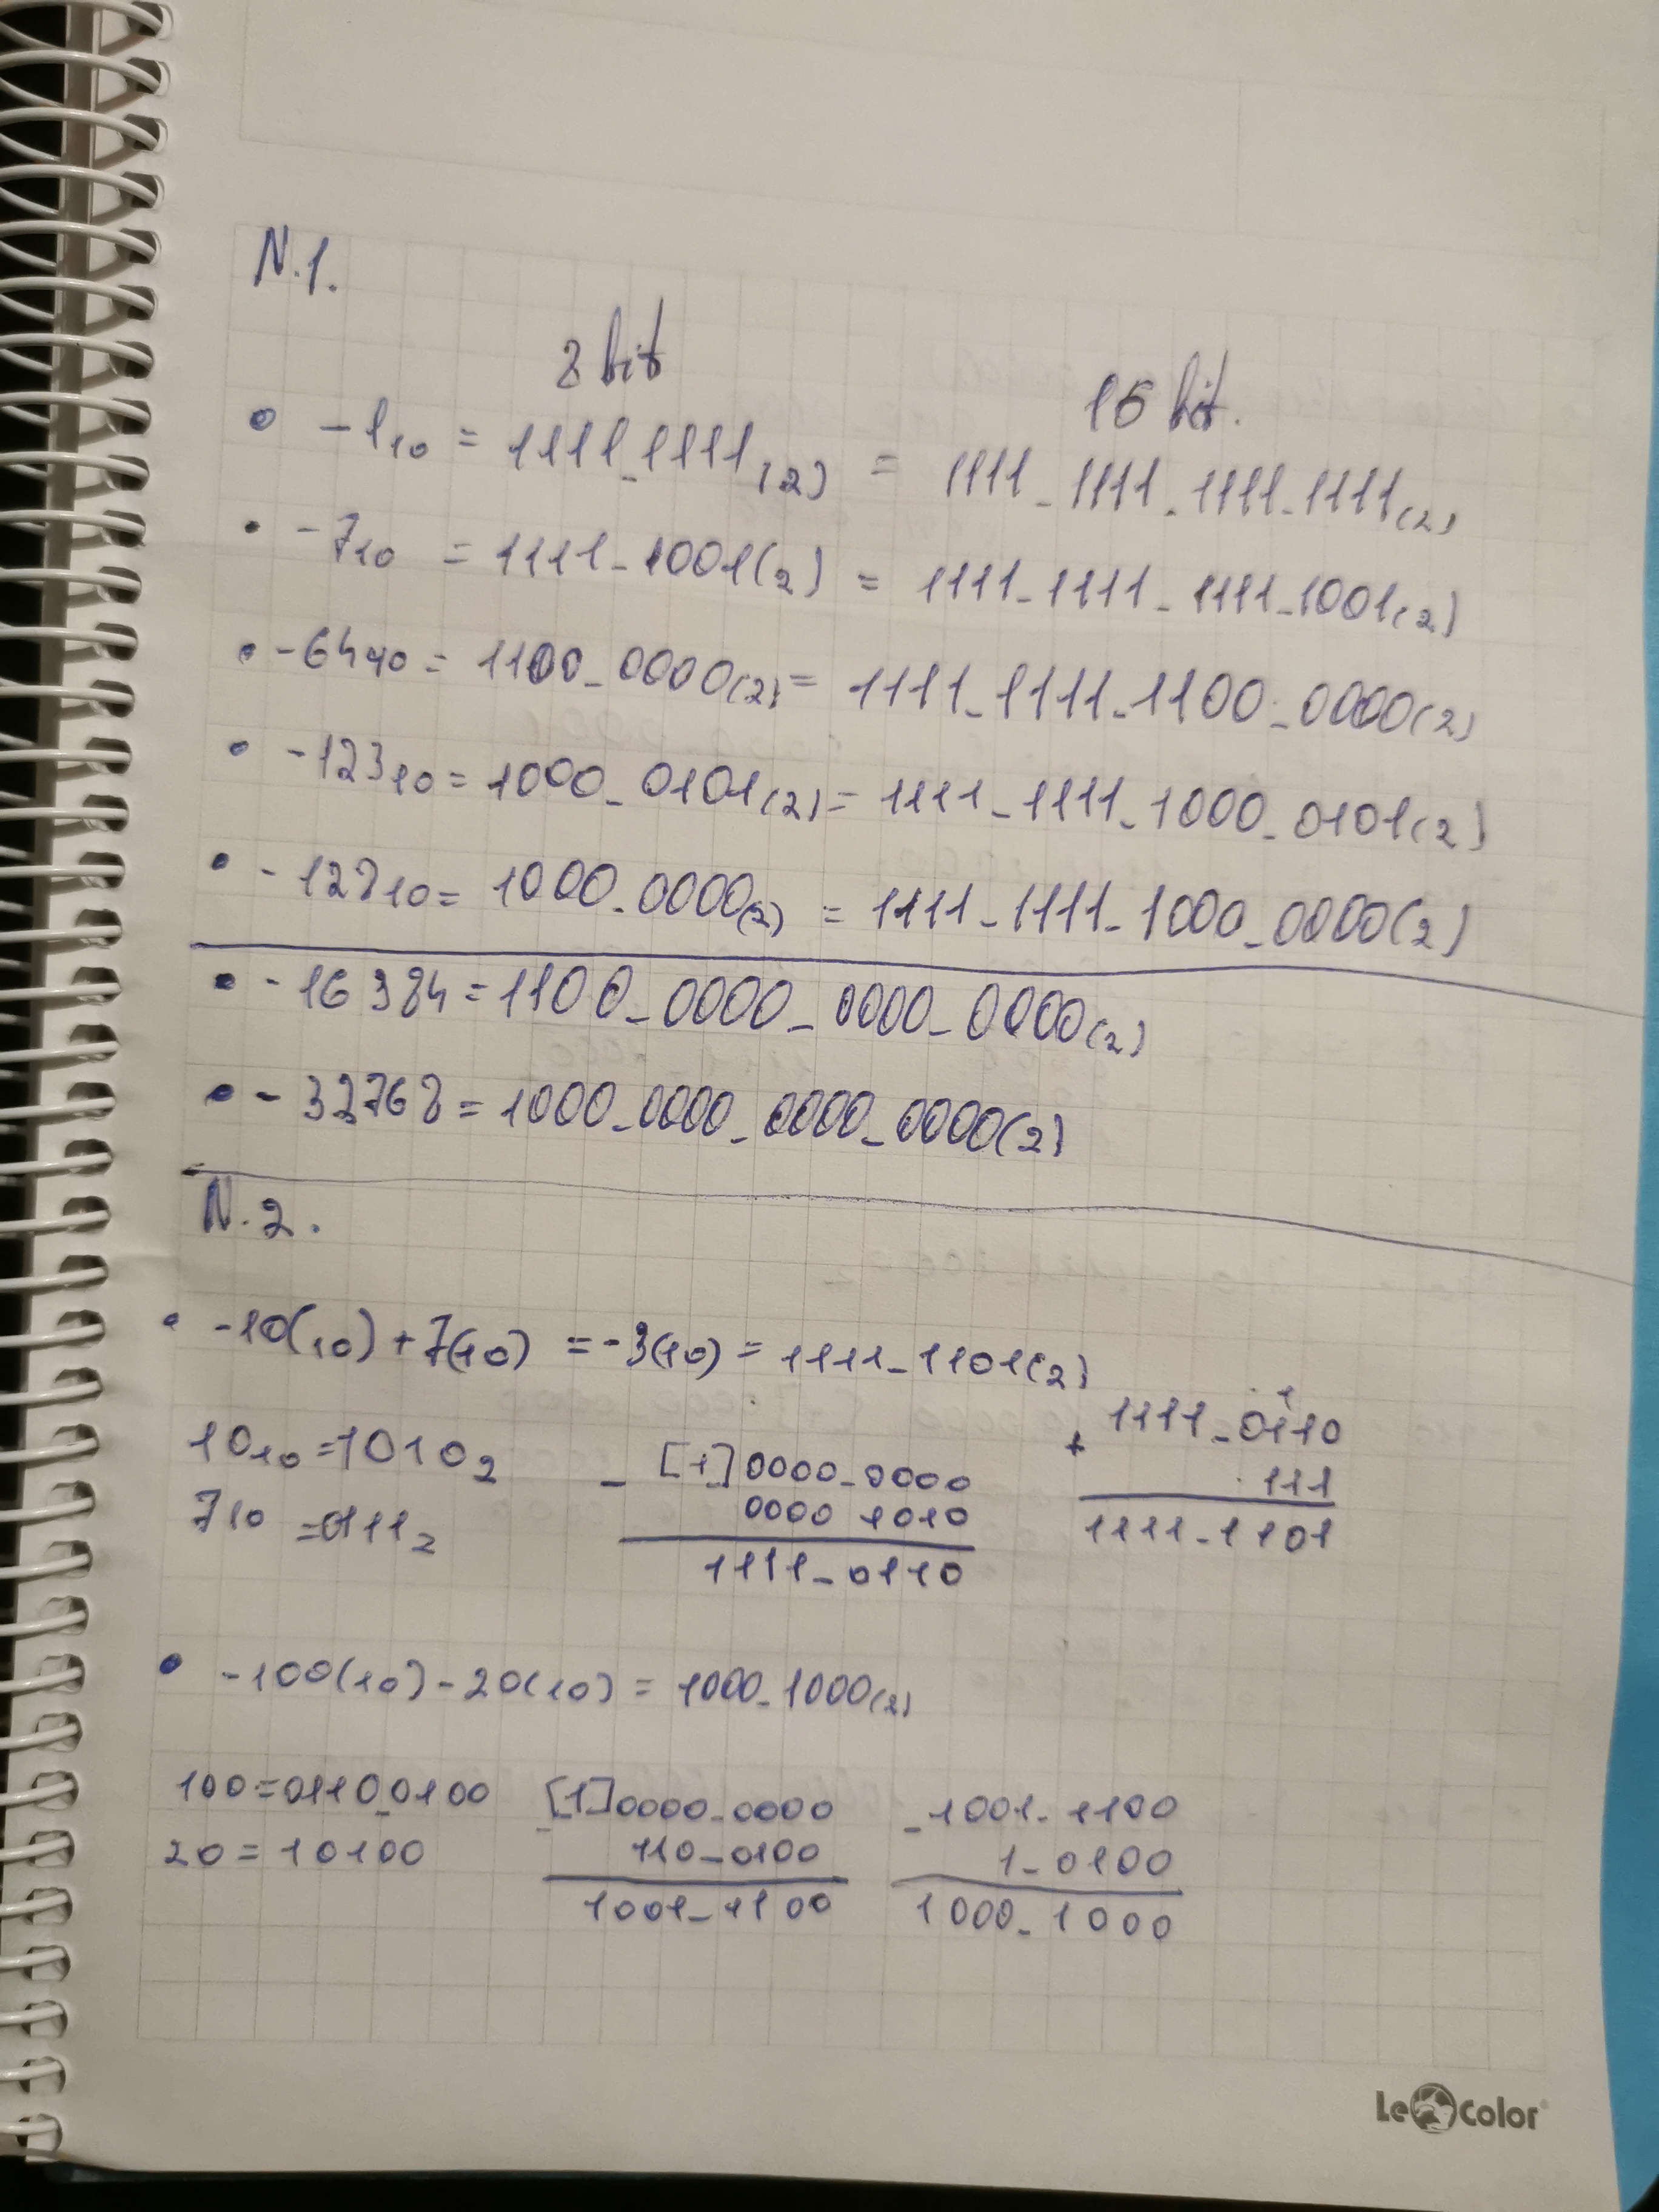 N.1.
8 bit 16 bit.
• -1₁₀ = 1111_1111(2) = 1111_1111_1111_1111(2)
• -7₁₀ = 1111_1001(2) = 1111_1111_1111_1001(2)
• -64₁₀ = 1100_0000(2) = 1111_1111_1100_0000(2)
• -123₁₀ = 1000_0101(2) = 1111_1111_1000_0101(2)
• -128₁₀ = 1000_0000(2) = 1111_1111_1000_0000(2)
• -16384 = 1100_0000_0000_0000(2)
• -32768 = 1000_0000_0000_0000(2)
N.2.
• -10(10) + 7(10) = -3(10) = 1111_1101(2)
10₁₀ = 1010₂ - [1]0000_0000 + 1111_0110
7₁₀ = 0111₂ 0000 1010 111
1111_0110 1111_1101
• -100(10) - 20(10) = 1000_1000(2)
100 = 0110_0100 - [1]0000_0000 - 1001_1100
20 = 10100 110_0100 1_0100
1001_1100 1000_1000
LeColor